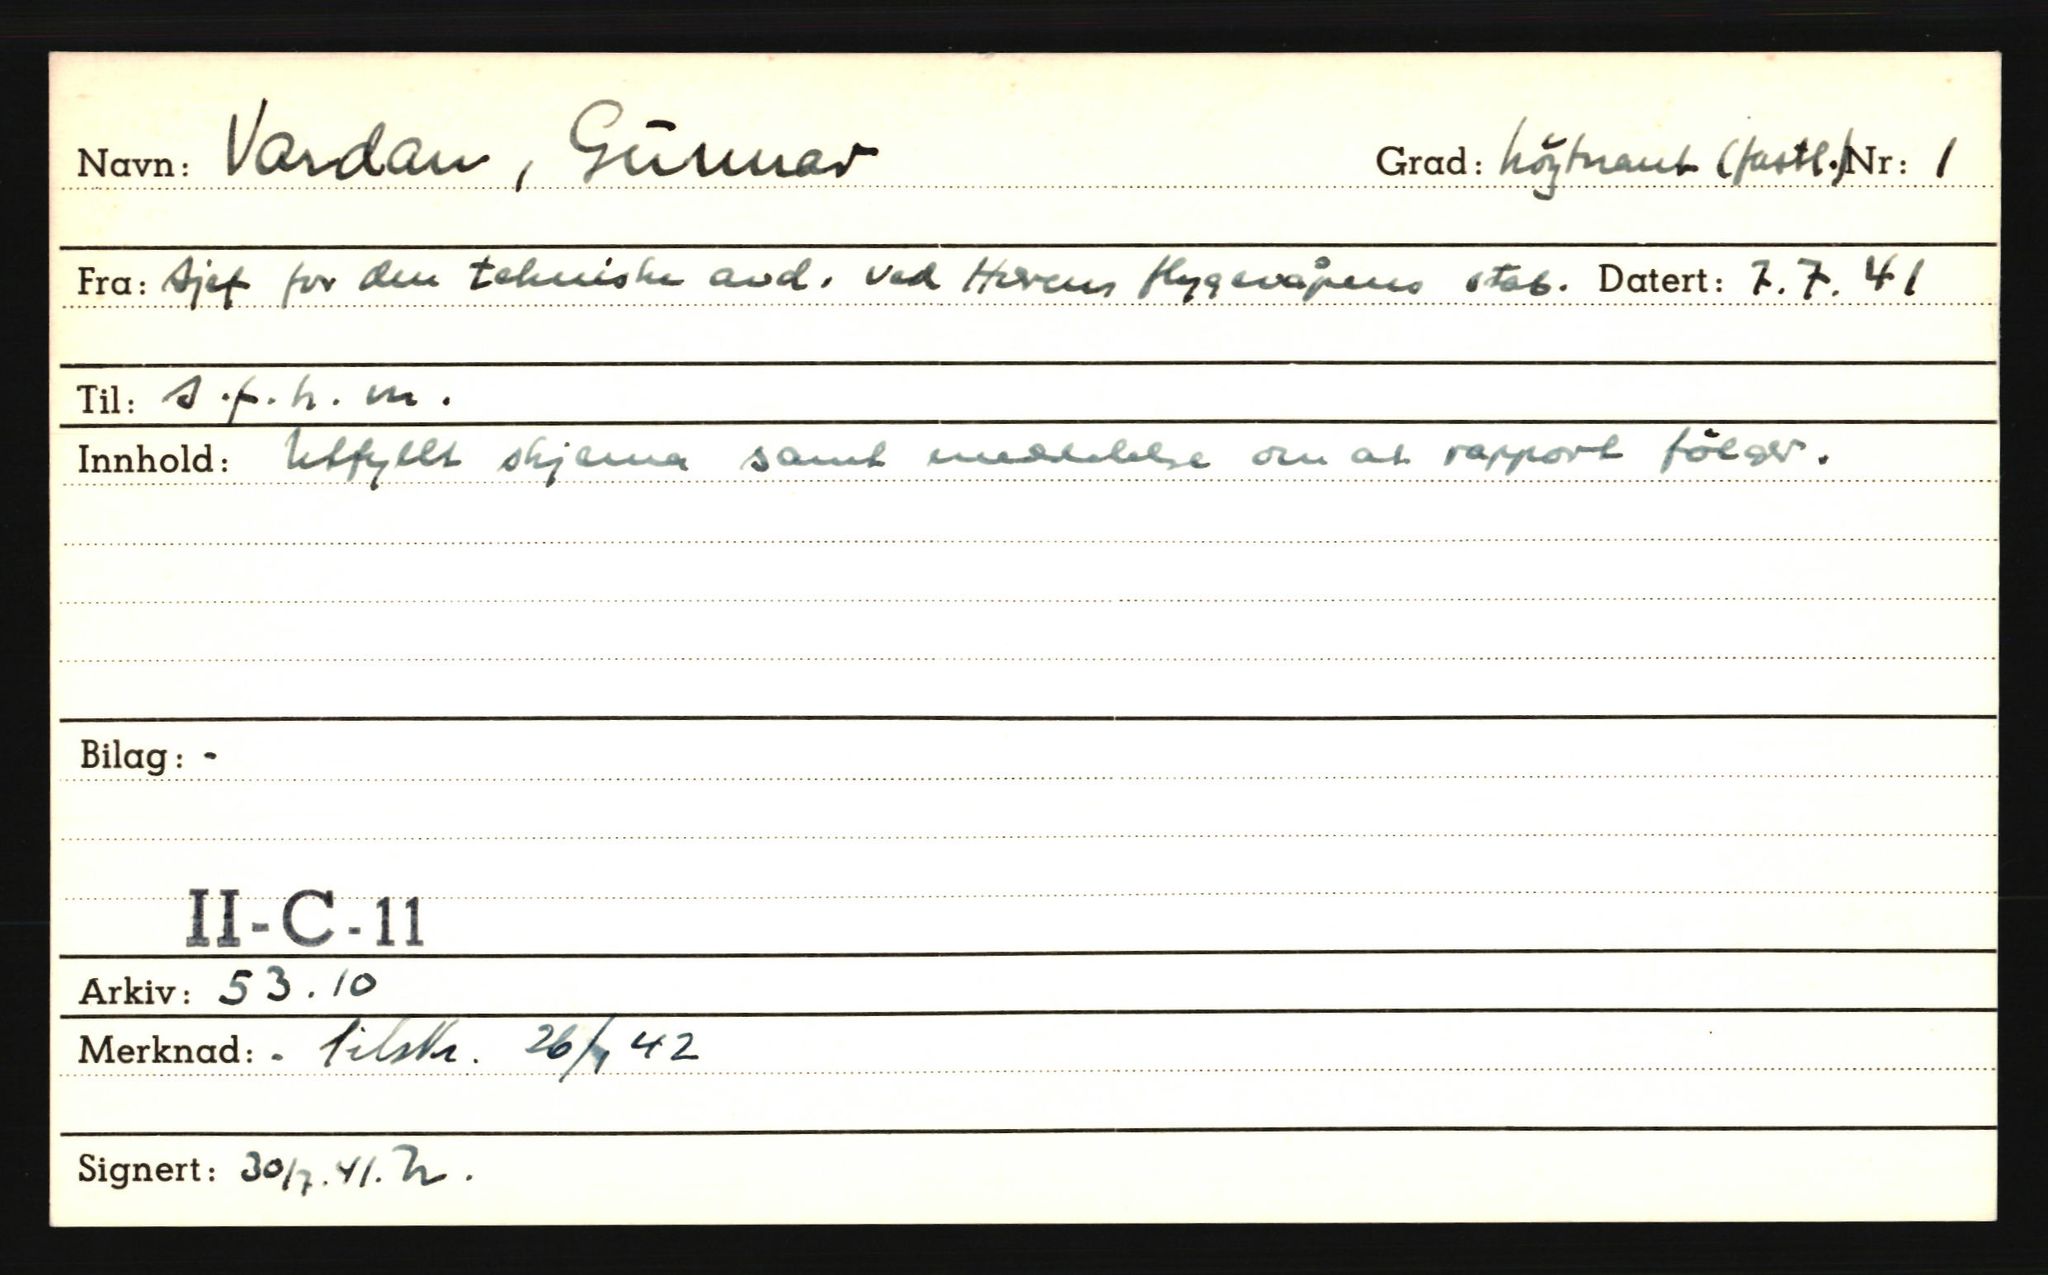 Navn: Vardan, Gunnar Grad: löytnant (fastl.) Nr: 1
Fra: Sjef for den tekniske avd. ved Hærens flygevåpens stab. Datert: 7.7.41
Til: s.f.h.m.
Innhold: Utfyllt skjema samt meddelelse om at rapport fölger.
Bilag: -
II-C-11
Arkiv: 53.10
Merknad: - 26/ 42
Signert: 30/7.41.